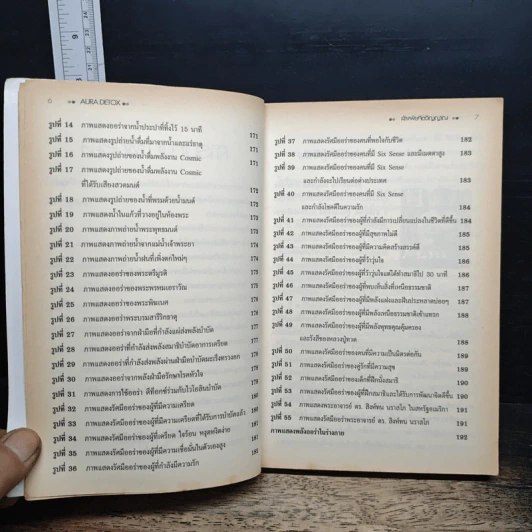 6 AURA DETOX
รูปที่ 14 ภาพแสดงออร่าจากน้ำประปาที่ทิ้งไว้ 15 นาที 171
รูปที่ 15 ภาพแสดงรูปถ่ายน้ำดื่มที่มาจากน้ำและแร่ธาตุ 171
รูปที่ 16 ภาพแสดงรูปถ่ายของน้ำดื่มพลังงาน Cosmic 171
รูปที่ 17 ภาพแสดงรูปถ่ายของน้ำดื่มพลังงาน Cosmic
ที่ได้รับเสียงสวดมนต์ 172
รูปที่ 18 ภาพแสดงรูปถ่ายของน้ำที่พรมด้วยน้ำมนต์
รูปที่ 19 ภาพแสดงน้ำในแก้วที่วางอยู่ในห้องพระ
รูปที่ 20 ภาพแสดงภาพถ่ายน้ำพระพุทธมนต์
รูปที่ 21 ภาพแสดงภาพถ่ายน้ำจากแม่น้ำเจ้าพระยา
รูปที่ 22 ภาพแสดงภาพถ่ายน้ำฝนที่เพิ่งตกใหม่ๆ
รูปที่ 23 ภาพแสดงออร่าของพระตรีมูรติ
รูปที่ 24 ภาพแสดงออร่าของพระพรหมเอราวัณ
รูปที่ 25 ภาพแสดงออร่าของพระพิฆเนศ
รูปที่ 26 ภาพแสดงออร่าพระบรมสารีริกธาตุ
รูปที่ 27 ภาพแสดงออร่าจากฝ่ามือที่กำลังแผ่ส่งพลังบำบัด
รูปที่ 28 ภาพแสดงออร่าที่กำลังส่งพลังสมาธิบำบัดอาการเครียด
รูปที่ 29 ภาพแสดงออร่าที่กำลังส่งพลังผ่านฝ่ามือบำบัดมะเร็งทรวงอก
รูปที่ 30 ภาพแสดงออร่าจากพลังฝ่ามือรักษาโรคหัวใจ
รูปที่ 31 ภาพแสดงการใช้ออร่า ดีท็อกซ์ร่วมกับไวโอลินบำบัด
รูปที่ 32 ภาพแสดงรัศมีออร่าของผู้ที่มีความเครียด
รูปที่ 33 ภาพแสดงรัศมีออร่าของผู้ที่มีความเครียดที่ได้รับการบำบัดแล้ว
รูปที่ 34 ภาพแสดงรัศมีออร่าของผู้ที่เครียด ใจร้อน หงุดหงิดง่าย
รูปที่ 35 ภาพแสดงรัศมีออร่าของผู้ที่มีความเชื่อมั่นในตัวเองสูง
รูปที่ 36 ภาพแสดงรัศมีออร่าของผู้ที่กำลังมีความรัก
7
รูปที่ 37 ภาพแสดงรัศมีออร่าของคนที่พอใจกับชีวิต 182
รูปที่ 38 ภาพแสดงรัศมีออร่าของคนที่มี Six Sense และมีเมตตาสูง 183
รูปที่ 39 ภาพแสดงรัศมีออร่าของคนที่มี Six Sense
และกำลังจะไปเรียนต่อต่างประเทศ 183
รูปที่ 40 ภาพแสดงรัศมีออร่าของคนที่มี Six Sense
และกำลังโชคดีในความรัก 184
รูปที่ 41 ภาพแสดงรัศมีออร่าของผู้ที่กำลังมีการเปลี่ยนแปลงในชีวิตที่ดีขึ้น 184
รูปที่ 42 ภาพแสดงรัศมีออร่าของผู้ที่มีสุขภาพไม่ดี 185
รูปที่ 43 ภาพแสดงรัศมีออร่าของผู้ที่มีความคิดสร้างสรรค์ดี
รูปที่ 44 ภาพแสดงรัศมีออร่าของผู้ที่ว้าวุ่นใจ
รูปที่ 45 ภาพแสดงรัศมีออร่าของผู้ที่ว้าวุ่นใจแต่ได้ทำสมาธิไป 30 นาที 186
รูปที่ 46 ภาพแสดงรัศมีออร่าของผู้ที่พบเห็นสิ่งที่เหนือธรรมชาติ
รูปที่ 47 ภาพแสดงรัศมีออร่าของผู้ที่มีพลังแฝงและฝันประหลาดบ่อยๆ
รูปที่ 48 ภาพแสดงรัศมีออร่าของผู้ที่มีพลังเหนือธรรมชาติเข้าแทรก
รูปที่ 49 ภาพแสดงรัศมีออร่าของผู้ที่มีพลังพุทธคุณคุ้มครอง
และรังสีของหลวงปู่ทวด
รูปที่ 50 ภาพแสดงรัศมีออร่าของคนที่มีความเป็นมิตรต่อกัน
รูปที่ 51 ภาพแสดงรัศมีออร่าของคู่รักที่มีความสุข
รูปที่ 52 ภาพแสดงรัศมีออร่าของเด็กที่ฝึกนั่งสมาธิ
รูปที่ 53 ภาพแสดงรัศมีออร่าของผู้ที่ฝึกสมาธิและได้รับการพัฒนาจิตดีขึ้น
รูปที่ 54 ภาพแสดงพระอาจารย์ ดร. สิงห์ทน นราสโภ ในสหรัฐอเมริกา 191
รูปที่ 55 ภาพแสดงรัศมีออร่าของพระอาจารย์ ดร. สิงห์ทน นราสโภ 191
ภาพแสดงพลังออร่าในร่างกาย 192